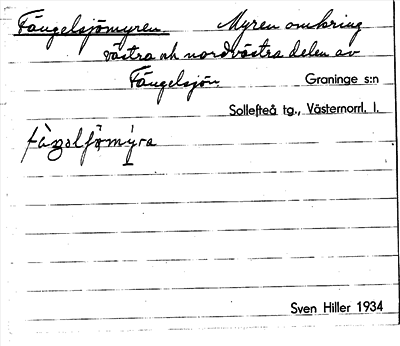 Fängelsjömyren. Myren omkring
västra och nordvästra delen av
Fängelsjön. Graninge s:n
Sollefteå tg., Västernorrl. l.
Sven Hiller 1934